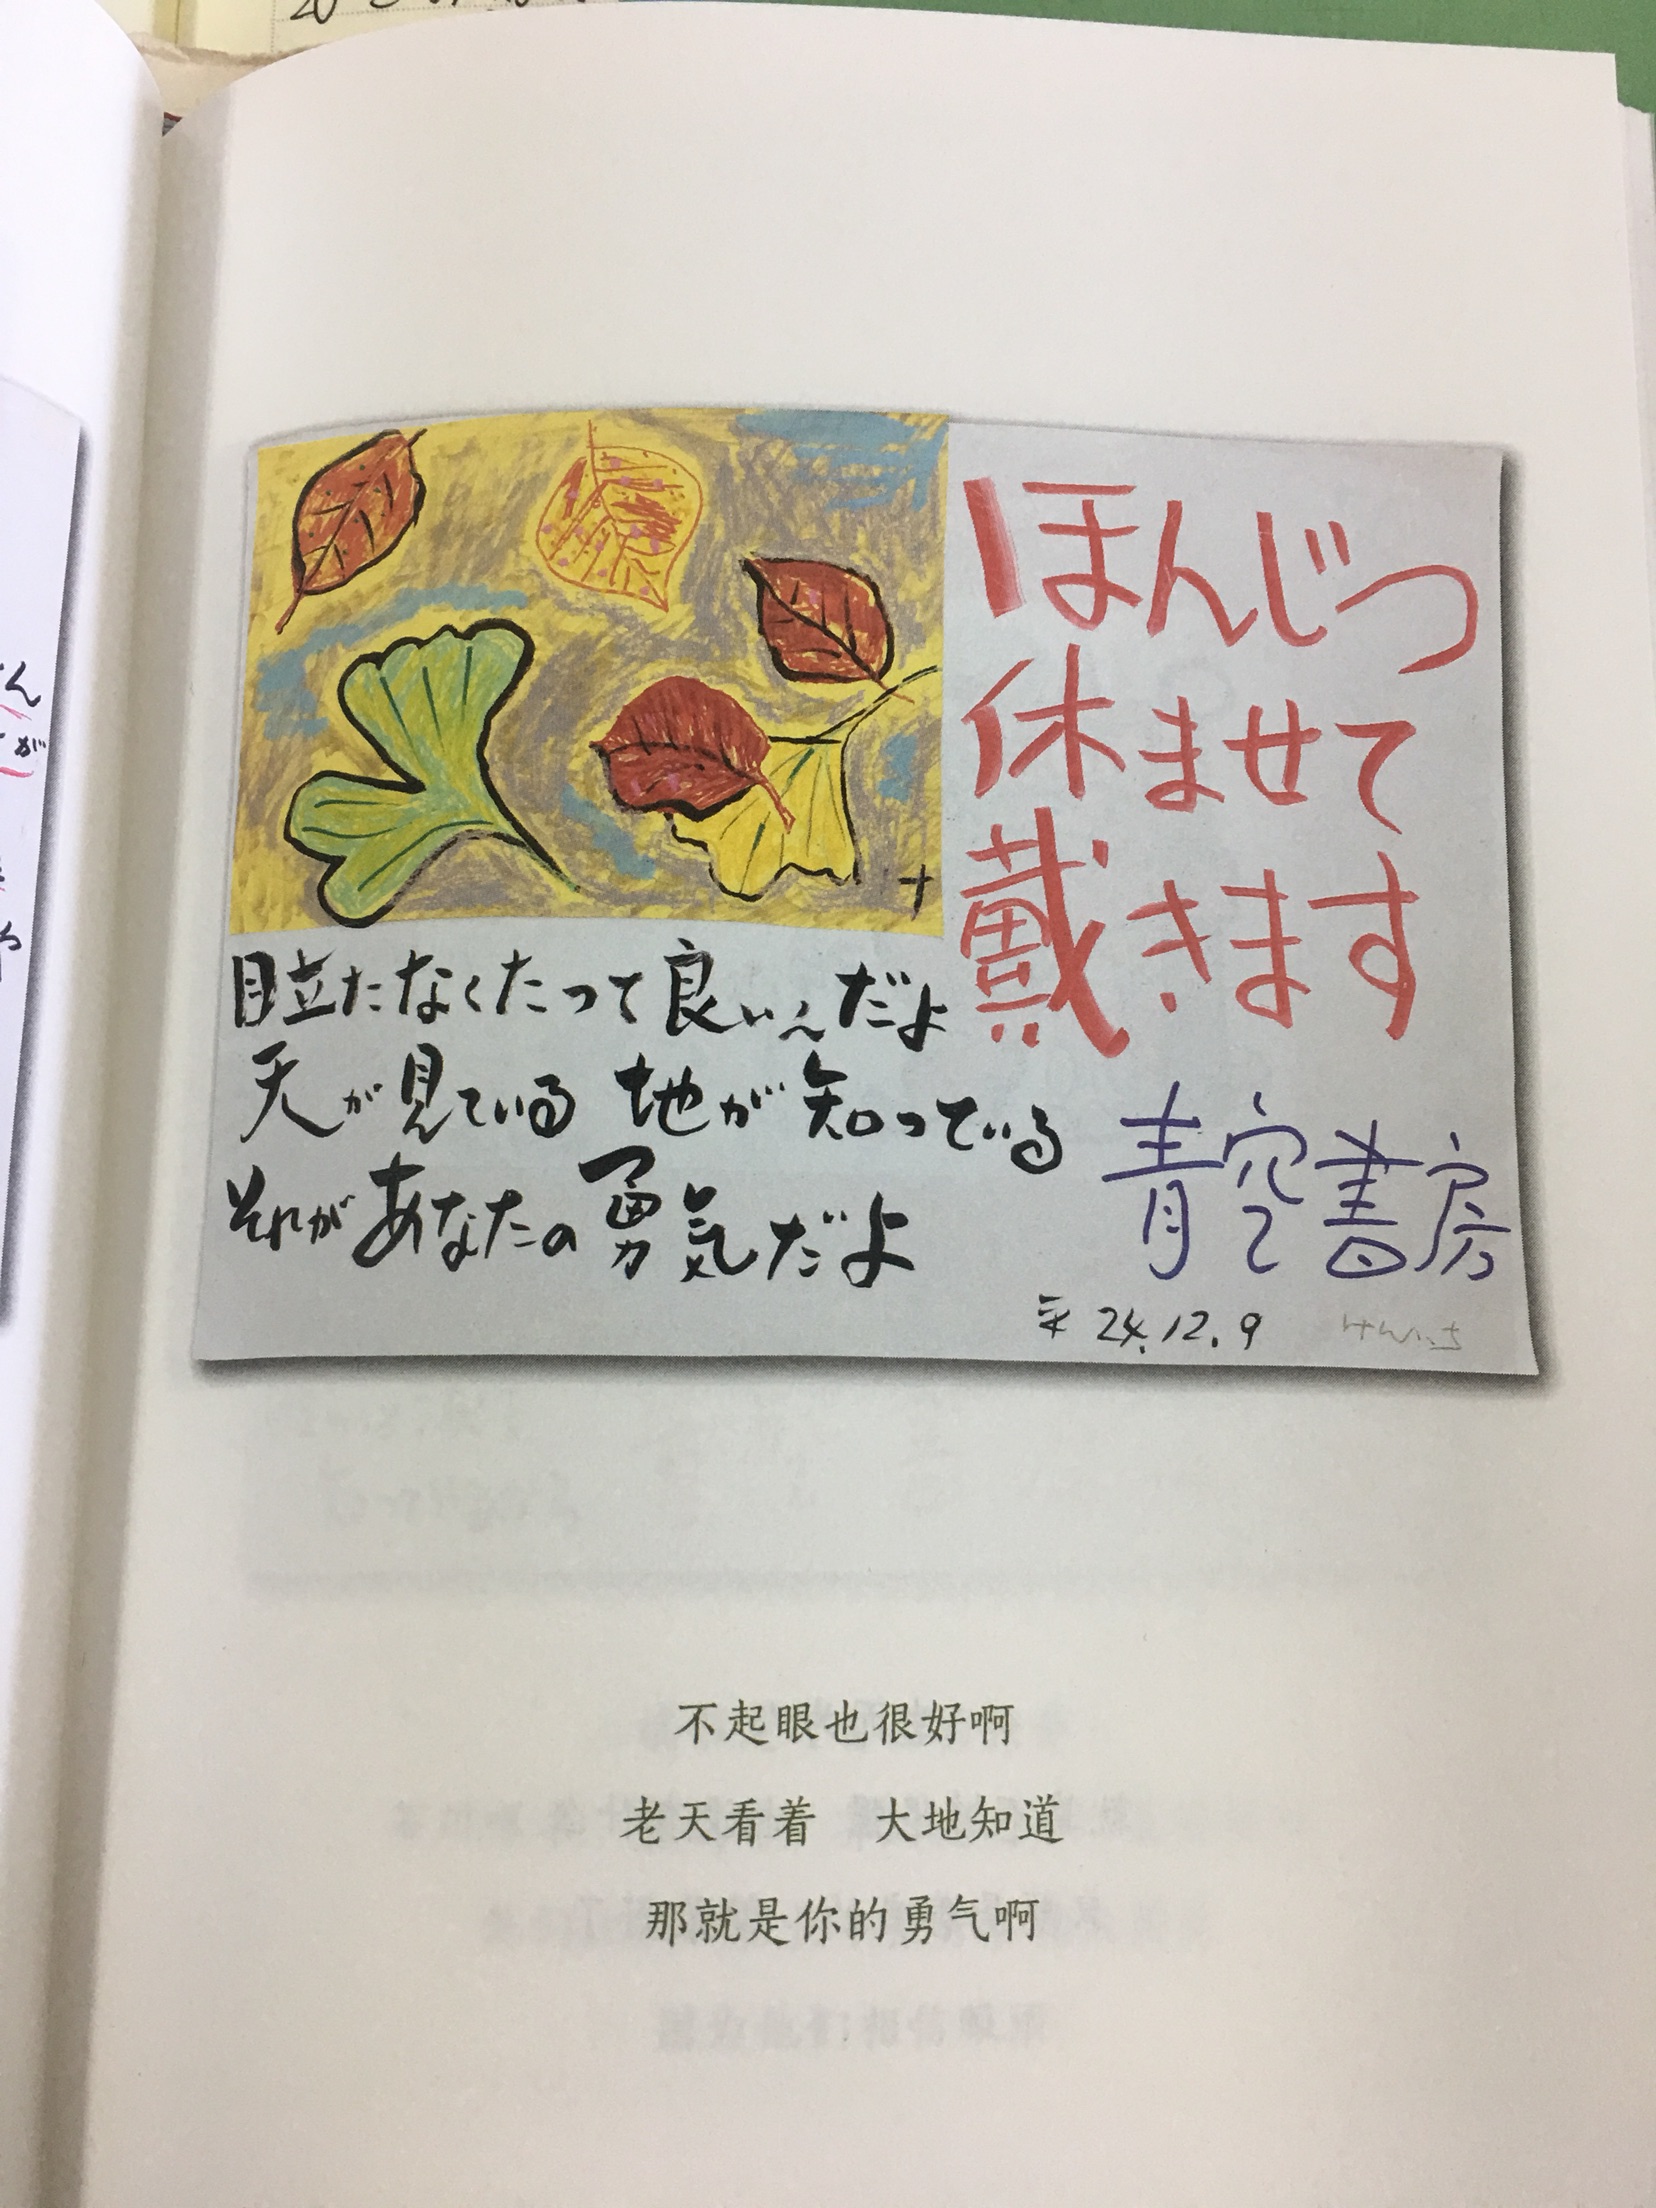 ほんじつ
休ませて
戴きます
目立たなくたって良いんだよ
天が見ている 地が知っている
それがあなたの勇気だよ
青空書房
平24.12.9
けんいち
不起眼也很好啊
老天看着 大地知道
那就是你的勇气啊